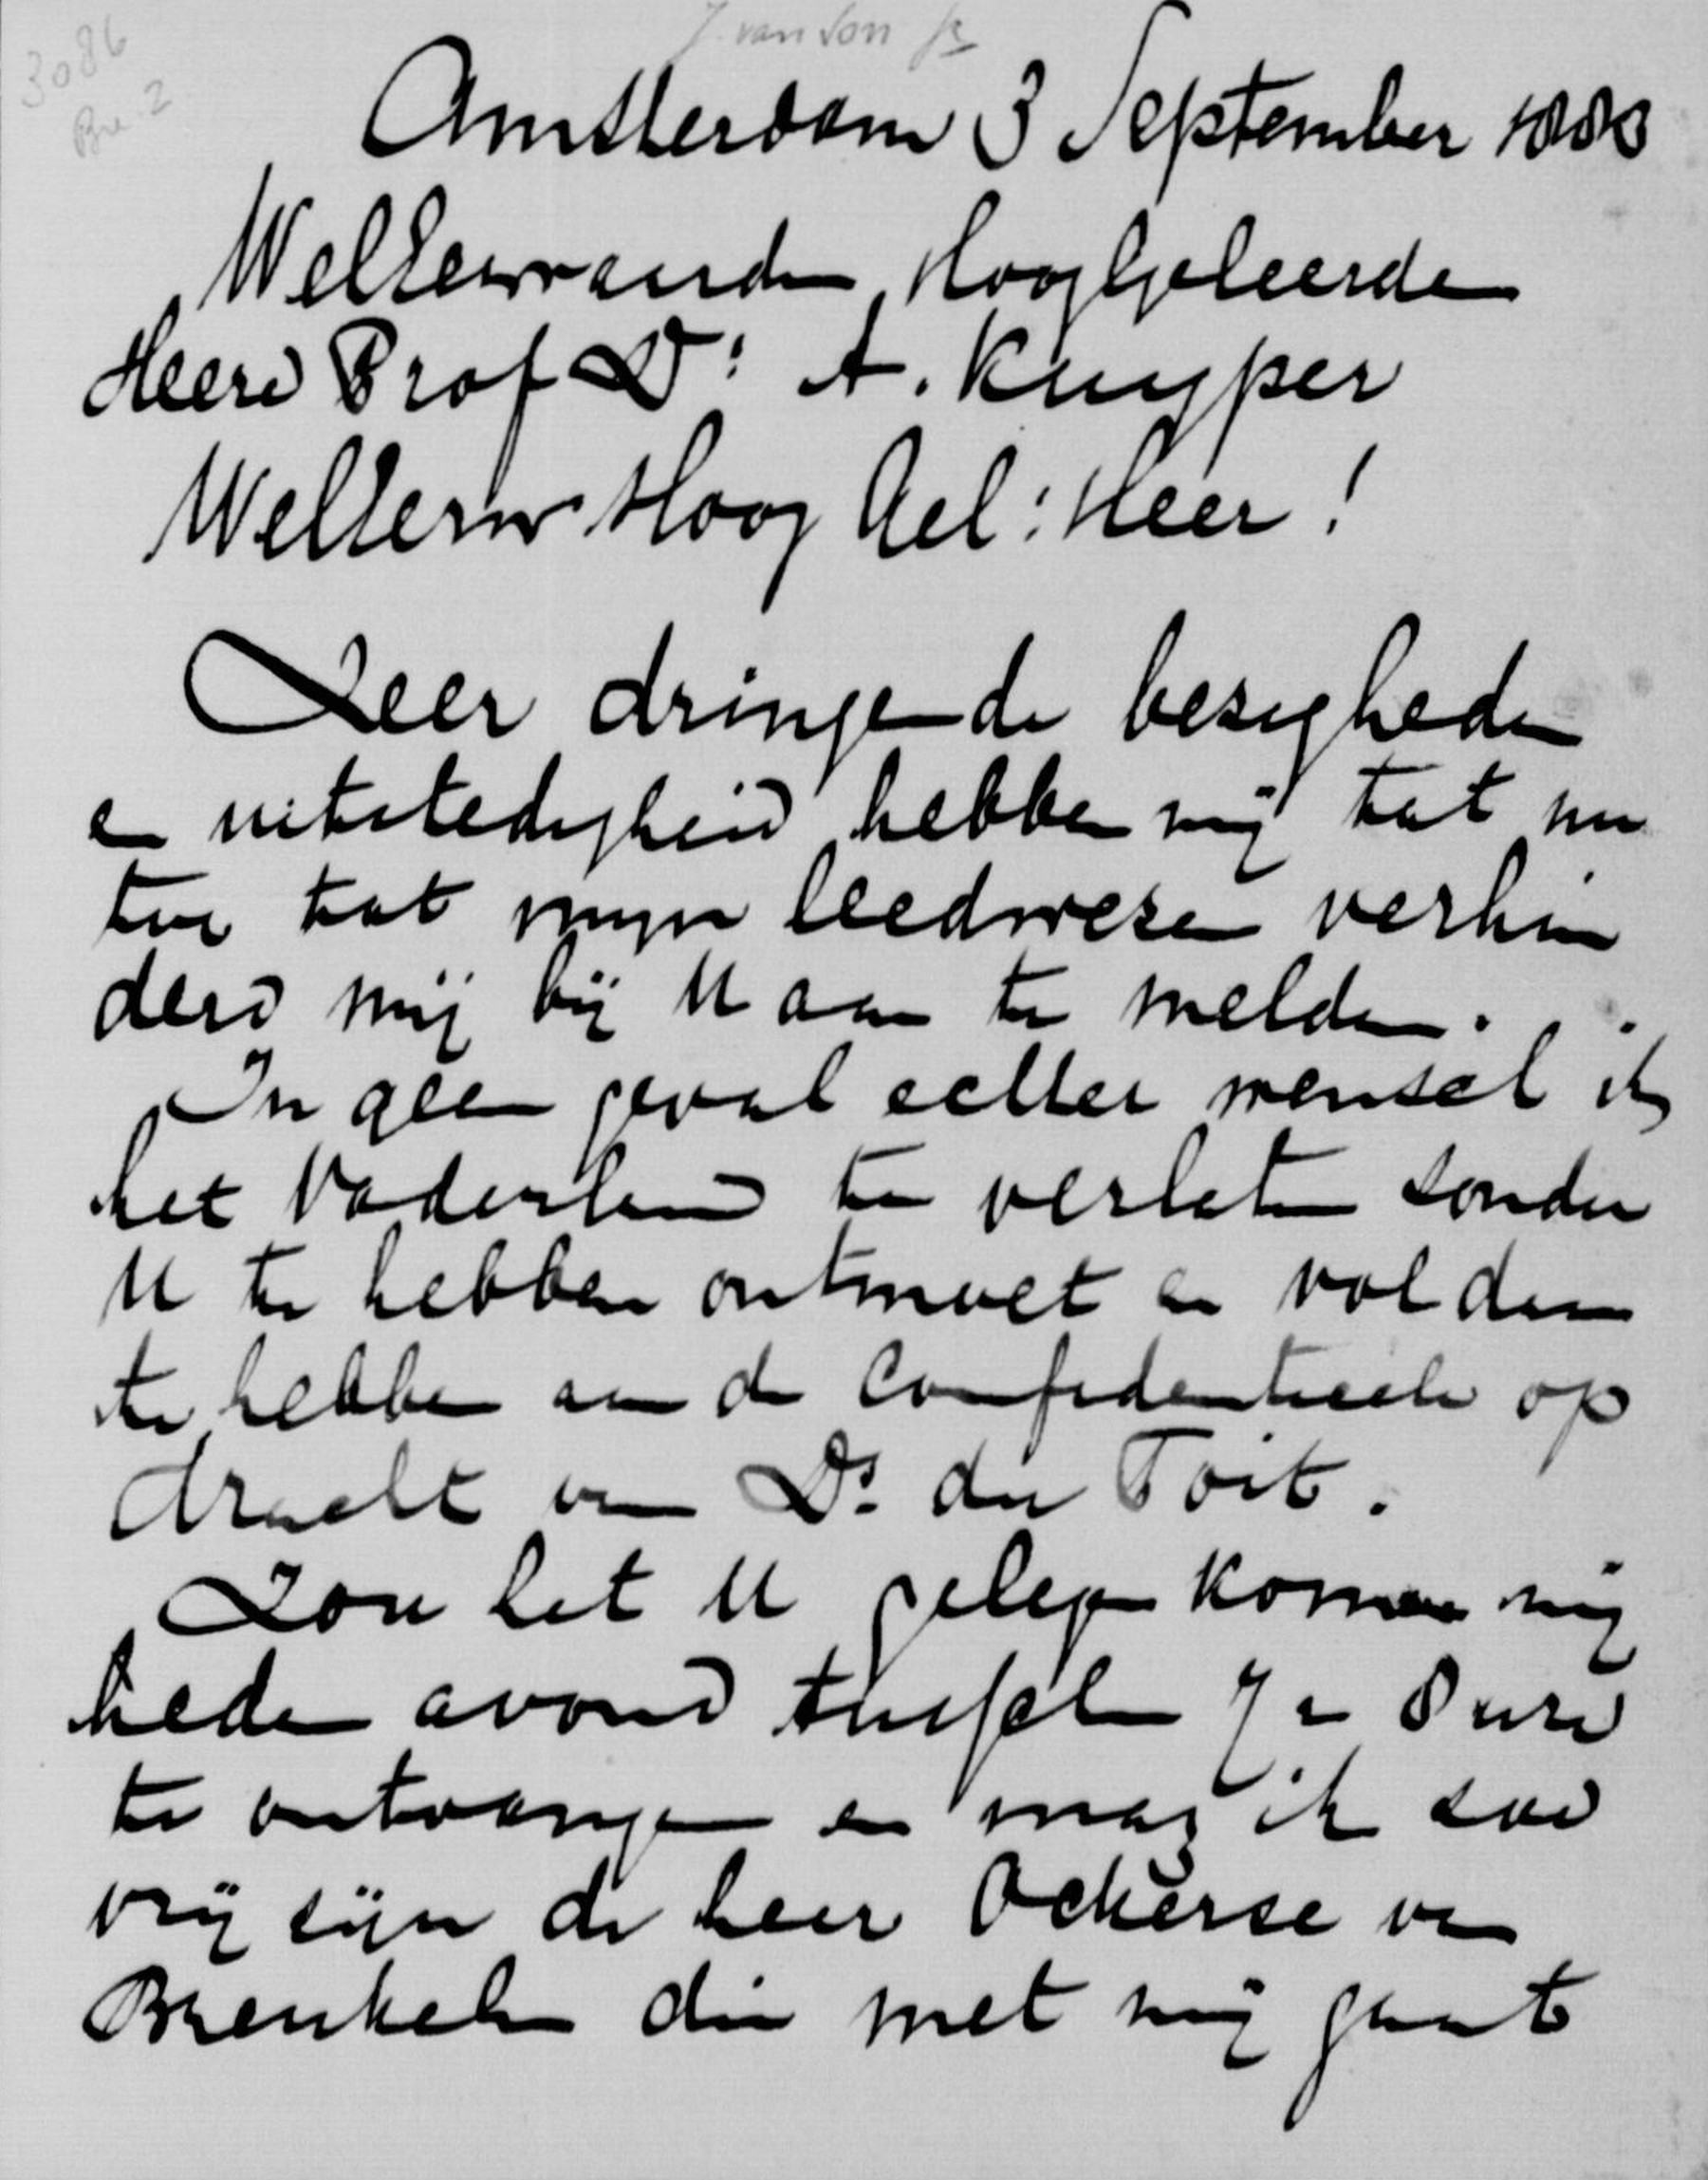 J. van Son Jr
3086
Br. 2
Amsterdam 3 September 1883
WelEerwaarden, Hooggeleerden
Heere Prof Dr: A. Kuyper
WelEerw Hoog Gel: Heer!
Zeer dringende bezigheden
en uitstedigheid hebben mij tot nu
toe tot mijn leedwezen verhin
derd mij bij U aan te melden.
In geen geval echter wensch ik
het Vaderland te verlaten zonder
U te hebben ontmoet en voldaan
te hebben aan de confidentieele op
dracht van Ds. du Toit.
Zou het U gelegen komen mij
heden avond tusschen 7 en 8 ure
te ontvangen en mag ik zoo
vrij zijn de heer Ockerse van
Breukelen die met mij gaat